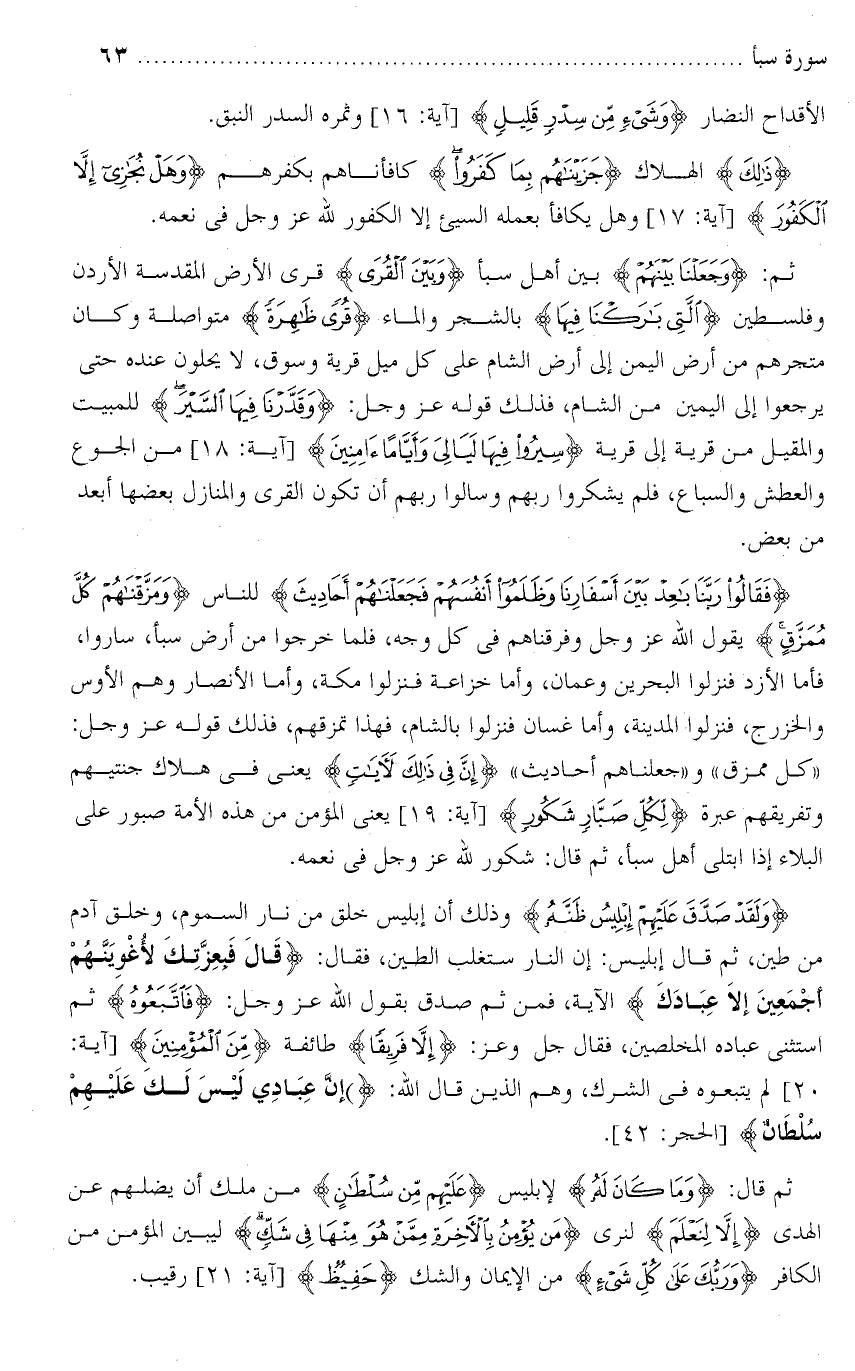 سورة سبأ ........................................................................... ٦٣
الأقداح النضار ﴿وَشَىْءٍ مِّن سِدْرٍ قَلِيلٍ﴾ [آية: ١٦] وثمره السدر النبق.
﴿ذَٰلِكَ﴾ الهـلاك ﴿جَزَيْنَٰهُم بِمَا كَفَرُوا۟ۖ﴾ كافأنـاهم بكفرهـم ﴿وَهَلْ نُجَٰزِىٓ إِلَّا
ٱلْكَفُورَ﴾ [آية: ١٧] وهل يكافأ بعمله السيئ إلا الكفور لله عز وجل فى نعمه.
ثـم: ﴿وَجَعَلْنَا بَيْنَهُمْ﴾ بين أهـل سبأ ﴿وَبَيْنَ ٱلْقُرَى﴾ قـرى الأرض المقدسـة الأردن
وفلسـطين ﴿ٱلَّتِى بَٰرَكْنَا فِيهَا﴾ بالشـجر والمـاء ﴿قُرًى ظَٰهِرَةً﴾ متواصلـة وكـان
متجرهـم من أرض اليمن إلى أرض الشام على كل ميل قرية وسوق، لا يحلون عنده حتى
يرجعوا إلى اليمين مـن الشام، فذلـك قولـه عـز وجـل: ﴿وَقَدَّرْنَا فِيهَا ٱلسَّيْرَۖ﴾ للمبيـت
والمقيـل مـن قريـة إلى قريـة ﴿سِيرُوا۟ فِيهَا لَيَالِىَ وَأَيَّامًا ءَامِنِينَ﴾ [آيـة: ١٨] مـن الجـوع
والعطش والسباع، فلم يشكروا ربهم وسالوا ربهم أن تكون القرى والمنازل بعضها أبعد
من بعض.
﴿فَقَالُوا۟ رَبَّنَا بَٰعِدْ بَيْنَ أَسْفَارِنَا وَظَلَمُوٓا۟ أَنفُسَهُمْ فَجَعَلْنَٰهُمْ أَحَادِيثَ﴾ للنـاس ﴿وَمَزَّقْنَٰهُمْ كُلَّ
مُمَزَّقٍۚ﴾ يقول الله عز وجل وفرقناهم فى كل وجه، فلما خرجوا من أرض سبأ، ساروا،
فأما الأزد فنزلوا البحرين وعمان، وأما خزاعـة فـنزلوا مكـة، وأمـا الأنصـار وهـم الأوس
والخزرج، فنزلوا المدينة، وأما غسان فنزلوا بالشام، فهذا تمزقهم، فذلك قولـه عـز وجـل:
«كـل ممزق» و«جعلنـاهم أحـاديث» ﴿إِنَّ فِى ذَٰلِكَ لَءَايَٰتٍ﴾ يعنى فـى هـلاك جنتيـهم
وتفريقهم عبرة ﴿لِّكُلِّ صَبَّارٍ شَكُورٍ﴾ [آية: ١٩] يعنى المؤمن من هذه الأمة صبور على
البلاء إذا ابتلى أهل سبأ، ثم قال: شكور لله عز وجل فى نعمه.
﴿وَلَقَدْ صَدَّقَ عَلَيْهِمْ إِبْلِيسُ ظَنَّهُۥ﴾ وذلك أن إبليس خلق من نـار السموم، وخلـق آدم
من طين، ثم قـال إبليس: إن النار ستغلب الطين، فقال: ﴿قَـالَ فَبِعِزَّتِـكَ لأُغْوِيَنَّـهُمْ
أَجْمَعِينَ إِلاَ عِبَـادَكَ﴾ الآية، فمـن ثـم صدق بقول الله عـز وجـل: ﴿فَٱتَّبَعُوهُ﴾ ثـم
استثنى عباده المخلصين، فقال جل وعـز: ﴿إِلَّا فَرِيقًا﴾ طائفـة ﴿مِّنَ ٱلْمُؤْمِنِينَ﴾ [آيـة:
٢٠] لم يتبعـوه فـى الشرك، وهـم الذيـن قـال الله: ﴿)إِنَّ عِبَـادِي لَيْـسَ لَـكَ عَلَيْـهِمْ
سُلْطَانٌ﴾ [الحجر: ٤٢].
ثم قال: ﴿وَمَا كَانَ لَهُۥ﴾ لإبليس ﴿عَلَيْهِم مِّن سُلْطَٰنٍ﴾ مـن ملـك أن يضلـهم عـن
الهدى ﴿إِلَّا لِنَعْلَمَ﴾ لنرى ﴿مَن يُؤْمِنُ بِٱلْءَاخِرَةِ مِمَّنْ هُوَ مِنْهَا فِى شَكٍّۗ﴾ ليبـين المؤمـن مـن
الكافر ﴿وَرَبُّكَ عَلَىٰ كُلِّ شَىْءٍ﴾ من الإيمان والشك ﴿حَفِيظٌ﴾ [آية: ٢١] رقيب.